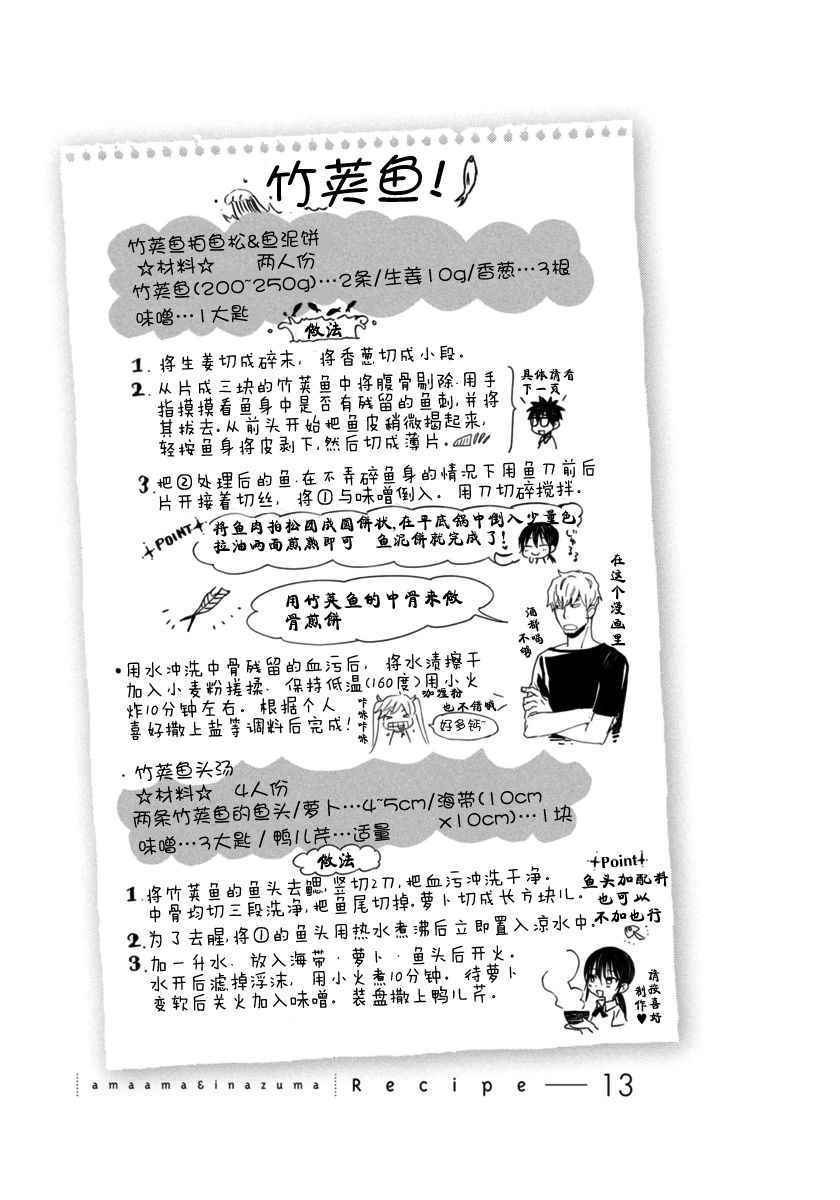 竹荚鱼!
竹荚鱼拍鱼松&鱼泥饼
☆材料☆ 两人份
竹荚鱼(200~250g)…2条/生姜10g/香葱…3根
味噌…1大匙
做法
1. 将生姜切成碎末, 将香葱切成小段。
2. 从片成三块的竹荚鱼中将腹骨剔除.用手
指摸摸看鱼身中是否有残留的鱼刺,并将
其拔去.从前头开始把鱼皮稍微揭起来,
轻按鱼身将皮剥下,然后切成薄片.
具体请看
下一页
3. 把②处理后的鱼.在不弄碎鱼身的情况下用鱼刀前后
片开接着切丝, 将①与味噌倒入. 用刀切碎搅拌.
POINT
将鱼肉拍松团成圆饼状,在平底锅中倒入少量色
拉油两面煎熟即可 鱼泥饼就完成了!
用竹荚鱼的中骨来做
骨煎饼
在这个漫画里
酒都喝
不够
•用水冲洗中骨残留的血污后, 将水渍擦干
加入小麦粉搓揉. 保持低温(160度)用小火
炸10分钟左右。根据个人
喜好撒上盐等调料后完成!
咔咻咔咻
咖喱粉
也不错哦
好多钙~
·竹荚鱼头汤
☆材料☆ 4人份
两条竹荚鱼的鱼头/萝卜…4~5cm/海带(10cm
x10cm)…1块
味噌…3大匙/鸭儿芹…适量
做法
1. 将竹荚鱼的鱼头去鳃,竖切2刀,把血污冲洗干净。
中骨均切三段洗净,把鱼尾切掉.萝卜切成长方块儿.
2. 为了去腥,将①的鱼头用热水煮沸后立即置入凉水中.
3. 加一升水. 放入海带·萝卜·鱼头后开火.
水开后滤掉浮沫, 用小火煮10分钟. 待萝卜
变软后关火加入味噌. 装盘撒上鸭儿芹.
Point
鱼头加配料
也可以
不加也行
请按喜好
制作♥
amaama&inazuma
Recipe — 13